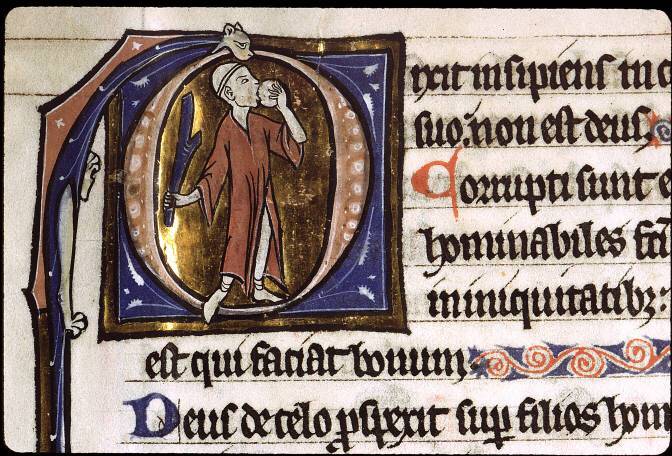 Dixit insipiens in c
suo. non est deus.
Corrupti sunt e
hominabiles fc̄i
in iniquitatibꝫ
est qui faciat bonum.
Deus de celo ꝓspexit sup̄ filios hom